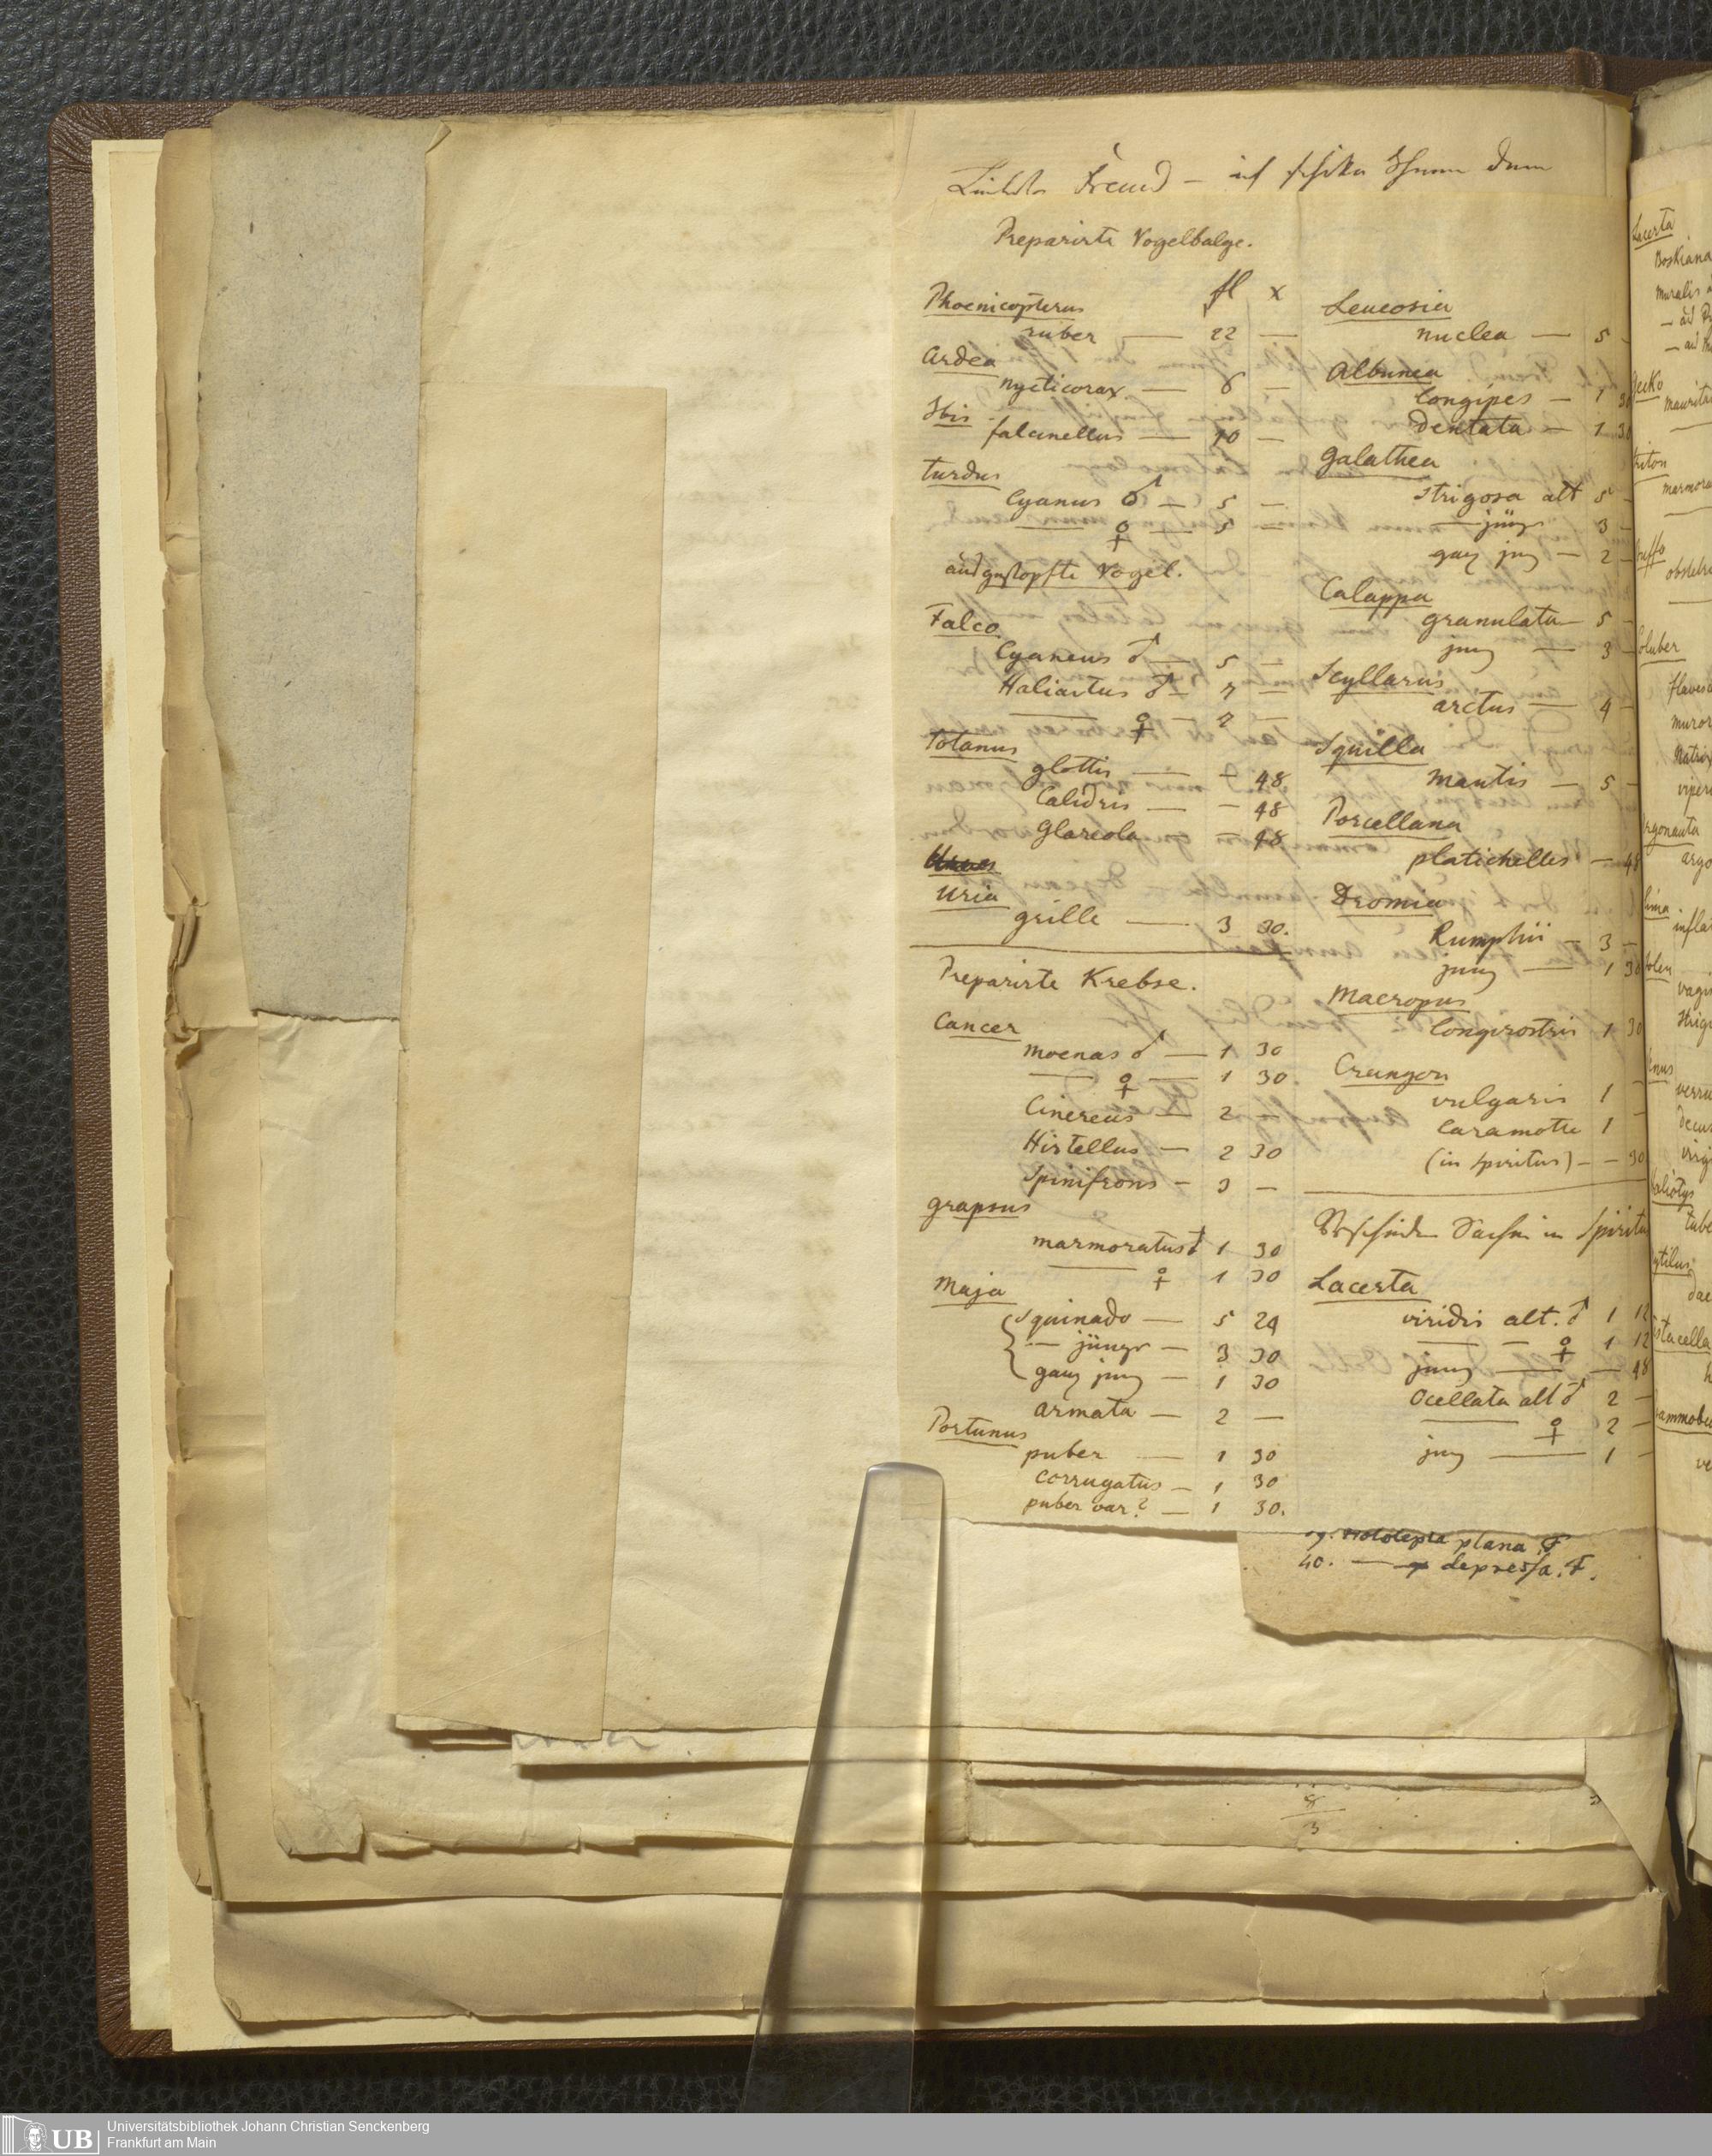 Freund – ich schicke Ihnen
Preparirte Vogelbalge.
fl x
Phoenicopterus
ruber — 22 —
Ardea
nycticorax — 6 —
Ibis
falcinellus — 10 —
Turdus
Cyanus ♂ — 5 —
— ♀ — 5 —
ausgestopfte Vogel.
Falco
Cyaneus ♂ — 5 —
Haliaetus ♂ — 7 —
— ♀ — 7 —
Totanus
glottis — – 48
Calidris — – 48
Glareola — 48
Uria
grille — 3 30.
Preparirte Krebse.
Cancer
moenas ♂ — 1 30
— ♀ — 1 30.
Cinereus — 2 –
Hirtellus — 2 30
Spinifrons – 3 —
grapsus
marmoratus ♂ 1 30
— ♀ 1 30
Maja
Squinado — 5 24
— jünger — 3 30
ganz jung — 1 30
armata — 2 —
Portunus
puber — 1 30
corrugatus – 1 30
puber var? — 1 30.
Leucosia
nuclea — 5 –
Albunea
longipes — 1 30
dentata — 1 30
Galathea
strigosa alt 5 –
— jünger 3 –
ganz jung — 2 –
Calappa
granulata — 5 –
jung — 3 –
Scyllarus
arctus — 4 –
Squilla
mantis — 5 –
Porcellana
platichelles — 48
Dromia
Rumphii – 3 –
jung — 1 30
Macropus
longirostris 1 30
Crangon
vulgaris 1 –
Caramotte 1 –
(in spiritus) – – 30
in Spiritu
Lacerta
viridis alt. ♂ 1 12
— ♀ 1 12
jung — — 48
Ocellata alt ♂ 2 –
— ♀ 2 –
jung — 1 –
plana F
40. — depressa. F.
8
3
Lacerta
Boskiana
muralis
Gecko
Triton
Buffo
Coluber
Natrix
Argonauta
argo
Lima
Solen
Haliotys
UB
Universitätsbibliothek Johann Christian Senckenberg
Frankfurt am Main